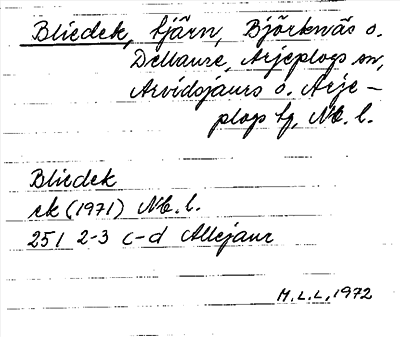 Bliedek, tjärn, Björknäs o.
Dellaure, Arjeplogs sn,
Arvidsjaurs o. Arje-
plogs tg, Nb. l.
Bliedek
ek (1971) Nb. l.
25 I 2-3 c-d Allejaur
H.L.L. 1972